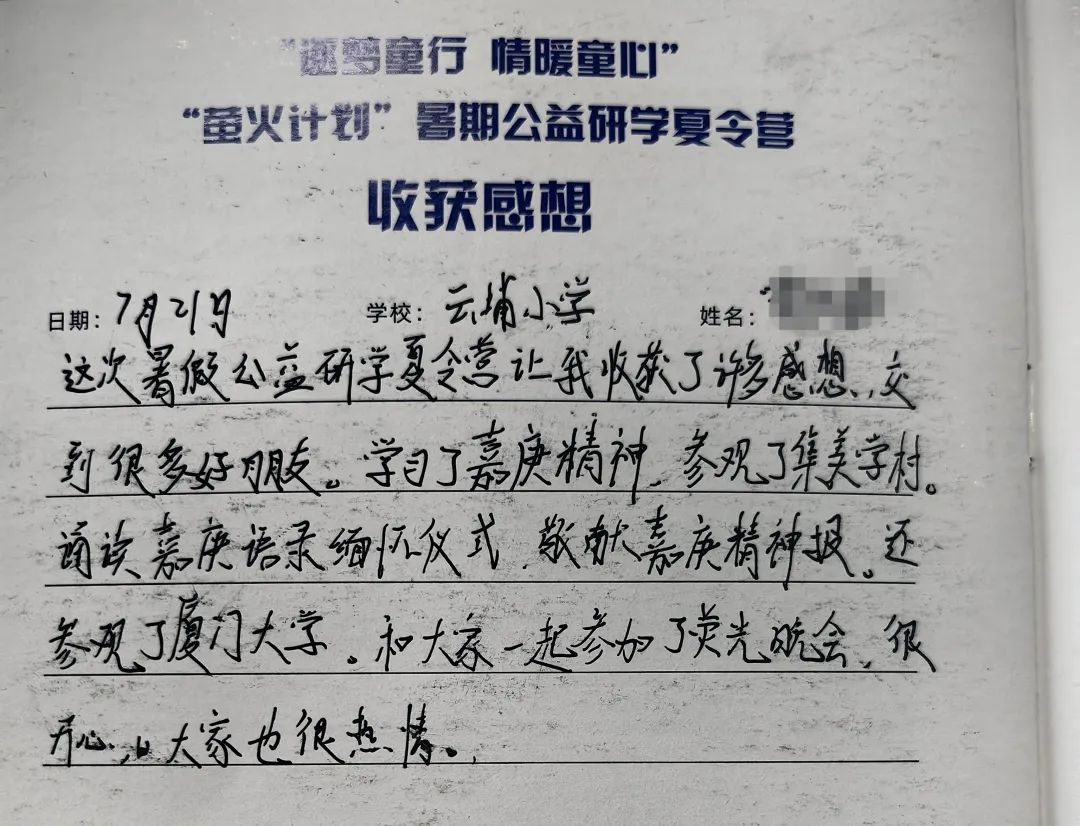 “逐梦童行 情暖童心”
“萤火计划”暑期公益研学夏令营
收获感想
日期：7月21日 学校：云埔小学 姓名：
这次暑假公益研学夏令营让我收获了许多感想，交
到很多好朋友。学习了嘉庚精神，参观了集美学村。
诵读嘉庚语录缅怀仪式，敬献嘉庚精神报。还
参观了厦门大学。和大家一起参加了荧光晚会，很
开心，大家也很热情。